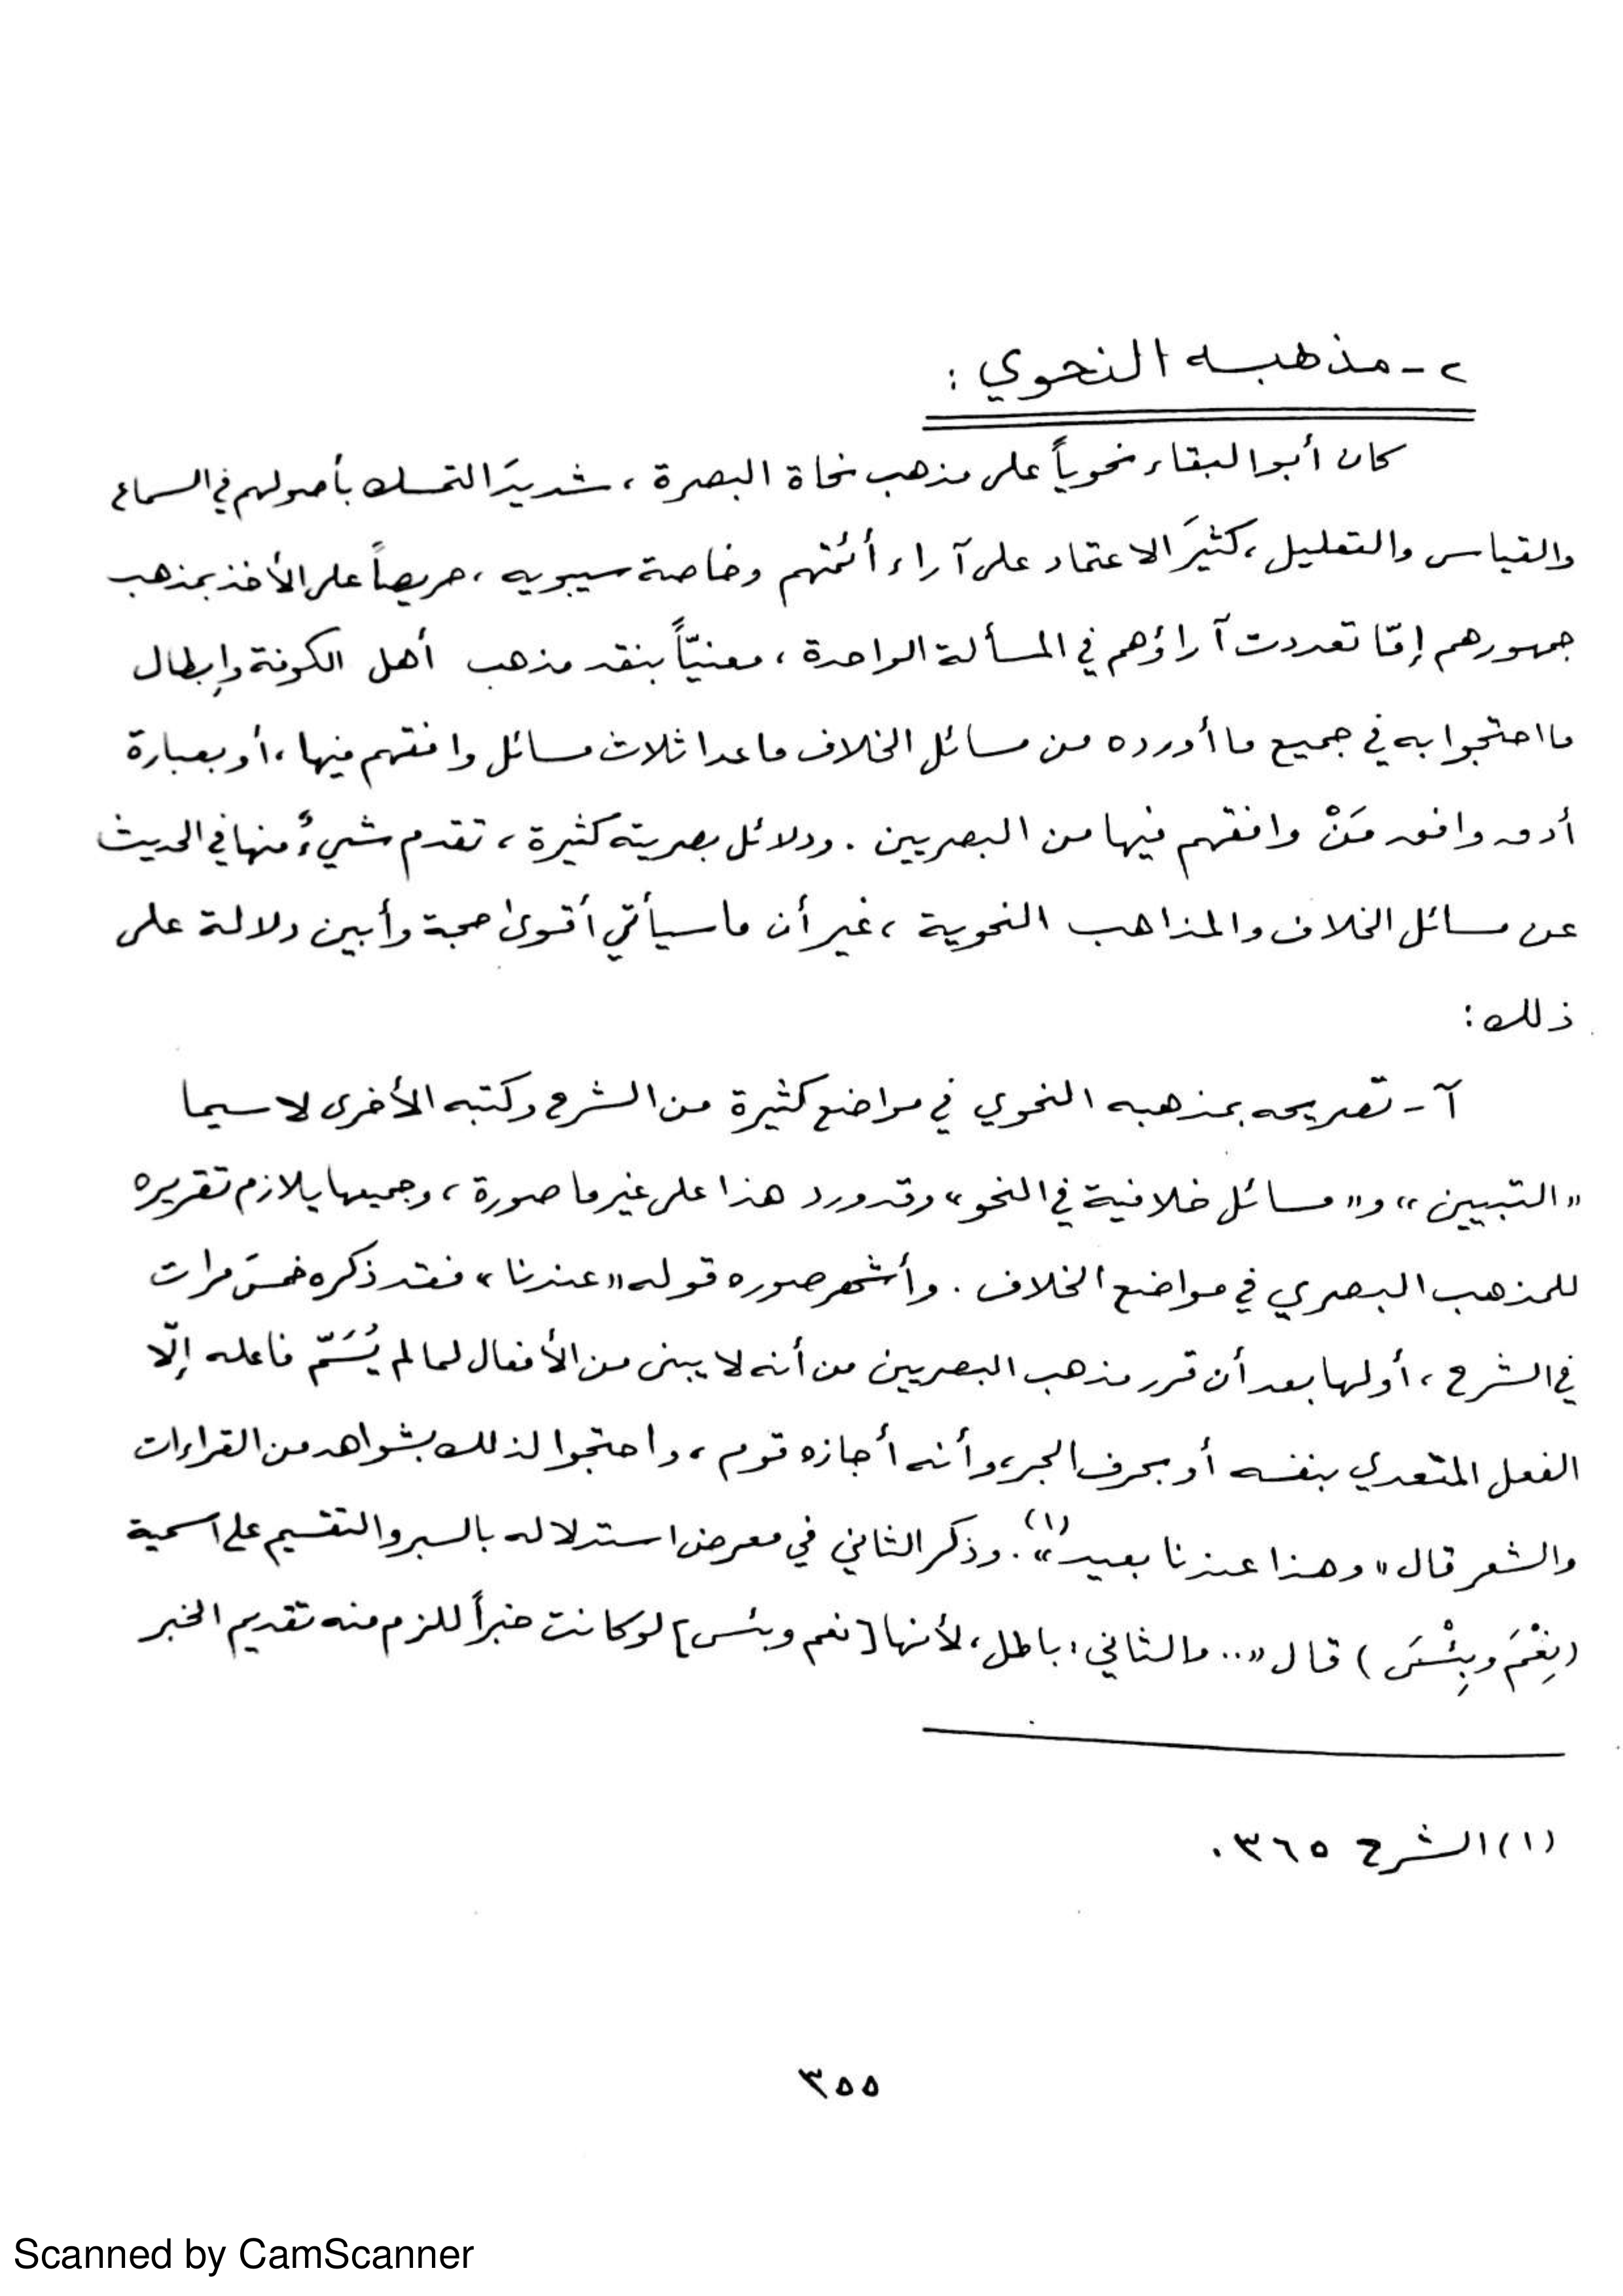 ٢- مذهبه النحوي :
كان أبو البقاء نحوياً على مذهب نحاة البصرة ، شديدَ التمسك بأصولهم في السماع
والقياس والتعليل ، كثيرَ الاعتماد على آراء أئمتهم وخاصة سيبويه ، حريصاً على الأخذ بمذهب
جمهورهم إمّا تعددت آراؤهم في المسألة الواحدة ، معنيّاً بنقد مذهب أهل الكوفة وإبطال
ما احتجوا به في جميع ما أورده من مسائل الخلاف ما عدا ثلاث مسائل وافقهم فيها ، أو بعبارة
أدق وافق مَنْ وافقهم فيها من البصريين . ودلائل بصريته كثيرة ، تقدم شيءٌ منها في الحديث
عن مسائل الخلاف والمذاهب النحوية ، غير أن ما سيأتي أقوى حجة وأبين دلالة على
ذلك :
آ- تصريحه بمذهبه النحوي في مواضع كثيرة من الشرح وكتبه الأخرى لا سيما
« التبيين » و « مسائل خلافية في النحو » وقد ورد هذا على غير ما صورة ، وجميعها يلازم تقريره
للمذهب البصري في مواضع الخلاف . وأشهر صوره قوله « عندنا » فقد ذكره خمسَ مرات
في الشرح ، أولها بعد أن قرر مذهب البصريين من أنه لا يبنى من الأفعال لما لم يُسَمَّ فاعله إلّا
الفعل المتعدي بنفسه أو بحرف الجر ، وأنه أجازه قوم ، واحتجوا لذلك بشواهد من القراءات
والشعر قال « وهذا عندنا بعيد »(١). وذكر الثاني في معرض استدلاله بالسبر والتقسيم على اسمية
(نِعْمَ وبِئْسَ ) قال « .. والثاني : باطل ، لأنها [نعم وبئس] لو كانت خبراً للزم منه تقديم الخبر
(١) الشرح ٣٦٥ .
٣٥٥
Scanned by CamScanner